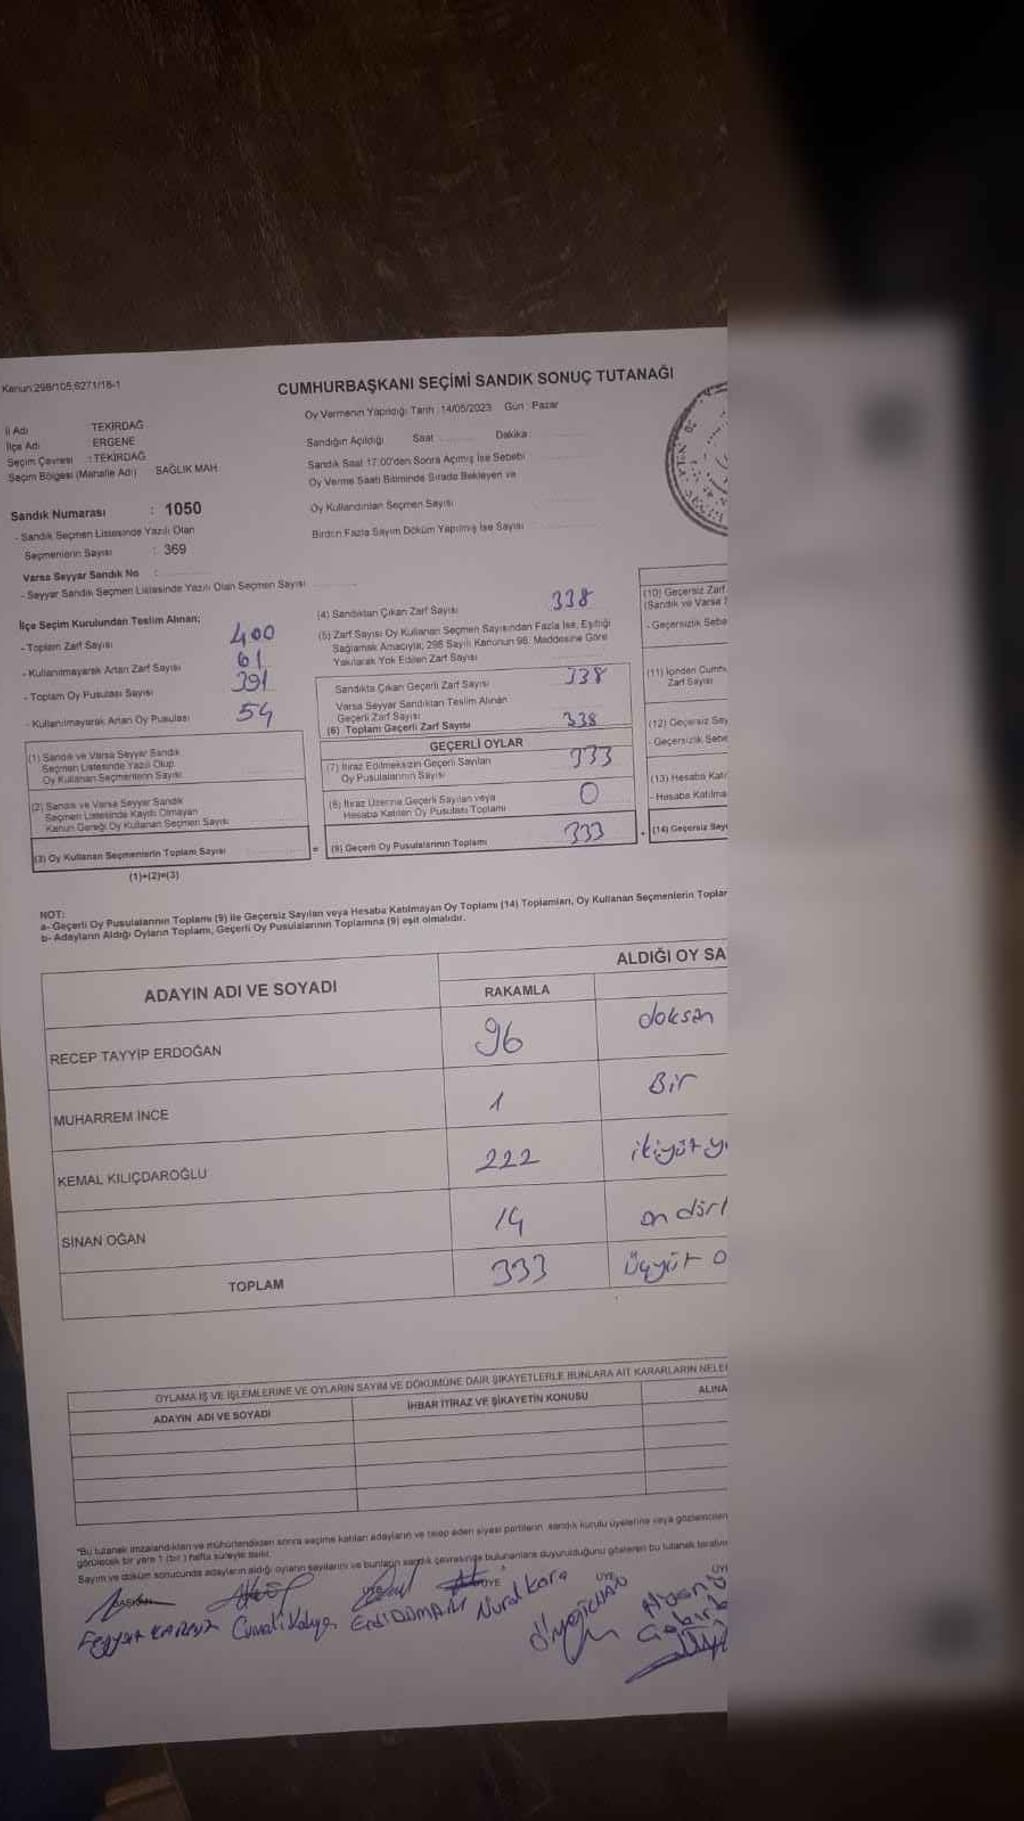 Kanun:298/105,6271/18-1
CUMHURBAŞKANI SEÇİMİ SANDIK SONUÇ TUTANAĞI
Oy Vermenin Yapıldığı Tarih : 14/05/2023 Gün : Pazar
İl Adı TEKİRDAĞ
İlçe Adı : ERGENE
Seçim Çevresi : TEKİRDAĞ
Seçim Bölgesi (Mahalle Adı) SAĞLIK MAH.
Sandığın Açıldığı Saat Dakika :
Sandık Saat 17:00'den Sonra Açılmış İse Sebebi
Oy Verme Saati Bitiminde Sırada Bekleyen ve
Oy Kullandırılan Seçmen Sayısı
Birden Fazla Sayım Döküm Yapılmış İse Sayısı
Sandık Numarası : 1050
- Sandık Seçmen Listesinde Yazılı Olan
Seçmenlerin Sayısı : 369
Varsa Seyyar Sandık No :
- Seyyar Sandık Seçmen Listesinde Yazılı Olan Seçmen Sayısı
İlçe Seçim Kurulundan Teslim Alınan;
- Toplam Zarf Sayısı 400
- Kullanılmayarak Artan Zarf Sayısı 61
- Toplam Oy Pusulası Sayısı 391
- Kullanılmayarak Artan Oy Pusulası 54
(1) Sandık ve Varsa Seyyar Sandık
Seçmen Listesinde Yazılı Olup
Oy Kullanan Seçmenlerin Sayısı
(2) Sandık ve Varsa Seyyar Sandık
Seçmen Listesinde Kayıtlı Olmayan
Kanun Gereği Oy Kullanan Seçmen Sayısı
(3) Oy Kullanan Seçmenlerin Toplam Sayısı =
(1)+(2)=(3)
(4) Sandıktan Çıkan Zarf Sayısı 338
(5) Zarf Sayısı Oy Kullanan Seçmen Sayısından Fazla İse, Eşitliği
Sağlamak Amacıyla, 298 Sayılı Kanunun 98. Maddesine Göre
Yakılarak Yok Edilen Zarf Sayısı
Sandıkta Çıkan Geçerli Zarf Sayısı 338
Varsa Seyyar Sandıktan Teslim Alınan
Geçerli Zarf Sayısı
(6) Toplam Geçerli Zarf Sayısı 338
GEÇERLİ OYLAR
(7) İtiraz Edilmeksizin Geçerli Sayılan
Oy Pusulalarının Sayısı 333
(8) İtiraz Üzerine Geçerli Sayılan veya
Hesaba Katılan Oy Pusulası Toplamı 0
(9) Geçerli Oy Pusulalarının Toplamı 333 +
(10) Geçersiz Zarf
(Sandık ve Varsa
- Geçersizlik Sebe
(11) İçinden Cumh
Zarf Sayısı
(12) Geçersiz Say
- Geçersizlik Sebe
(13) Hesaba Katı
- Hesaba Katılma
(14) Geçersiz Say
NOT:
a- Geçerli Oy Pusulalarının Toplamı (9) ile Geçersiz Sayılan veya Hesaba Katılmayan Oy Toplamı (14) Toplamları, Oy Kullanan Seçmenlerin Toplar
b- Adayların Aldığı Oyların Toplamı, Geçerli Oy Pusulalarının Toplamına (9) eşit olmalıdır.
ADAYIN ADI VE SOYADI ALDIĞI OY SA
RAKAMLA
RECEP TAYYİP ERDOĞAN 96 doksan
MUHARREM İNCE 1 Bir
KEMAL KILIÇDAROĞLU 222 ikiyüz yi
SİNAN OĞAN 14 on dört
TOPLAM 333 üçyüz o
OYLAMA İŞ VE İŞLEMLERİNE VE OYLARIN SAYIM VE DÖKÜMÜNE DAİR ŞİKAYETLERLE BUNLARA AİT KARARLARIN NELE
ADAYIN ADI VE SOYADI İHBAR İTİRAZ VE ŞİKAYETİN KONUSU ALINA
*Bu tutanak imzalandıktan ve mühürlendikten sonra seçime katılan adayların ve talep eden siyasi partilerin sandık kurulu üyelerine veya gözlemcileri
görülecek bir yere 1 (bir) hafta süreyle asılır.
Sayım ve döküm sonucunda adayların aldığı oyların sayılarını ve bunların sandık çevresinde bulunanlara duyurulduğunu gösteren bu tutanak tarafım
BAŞKAN ÜYE ÜYE
Cumali Erdi Nural Kara